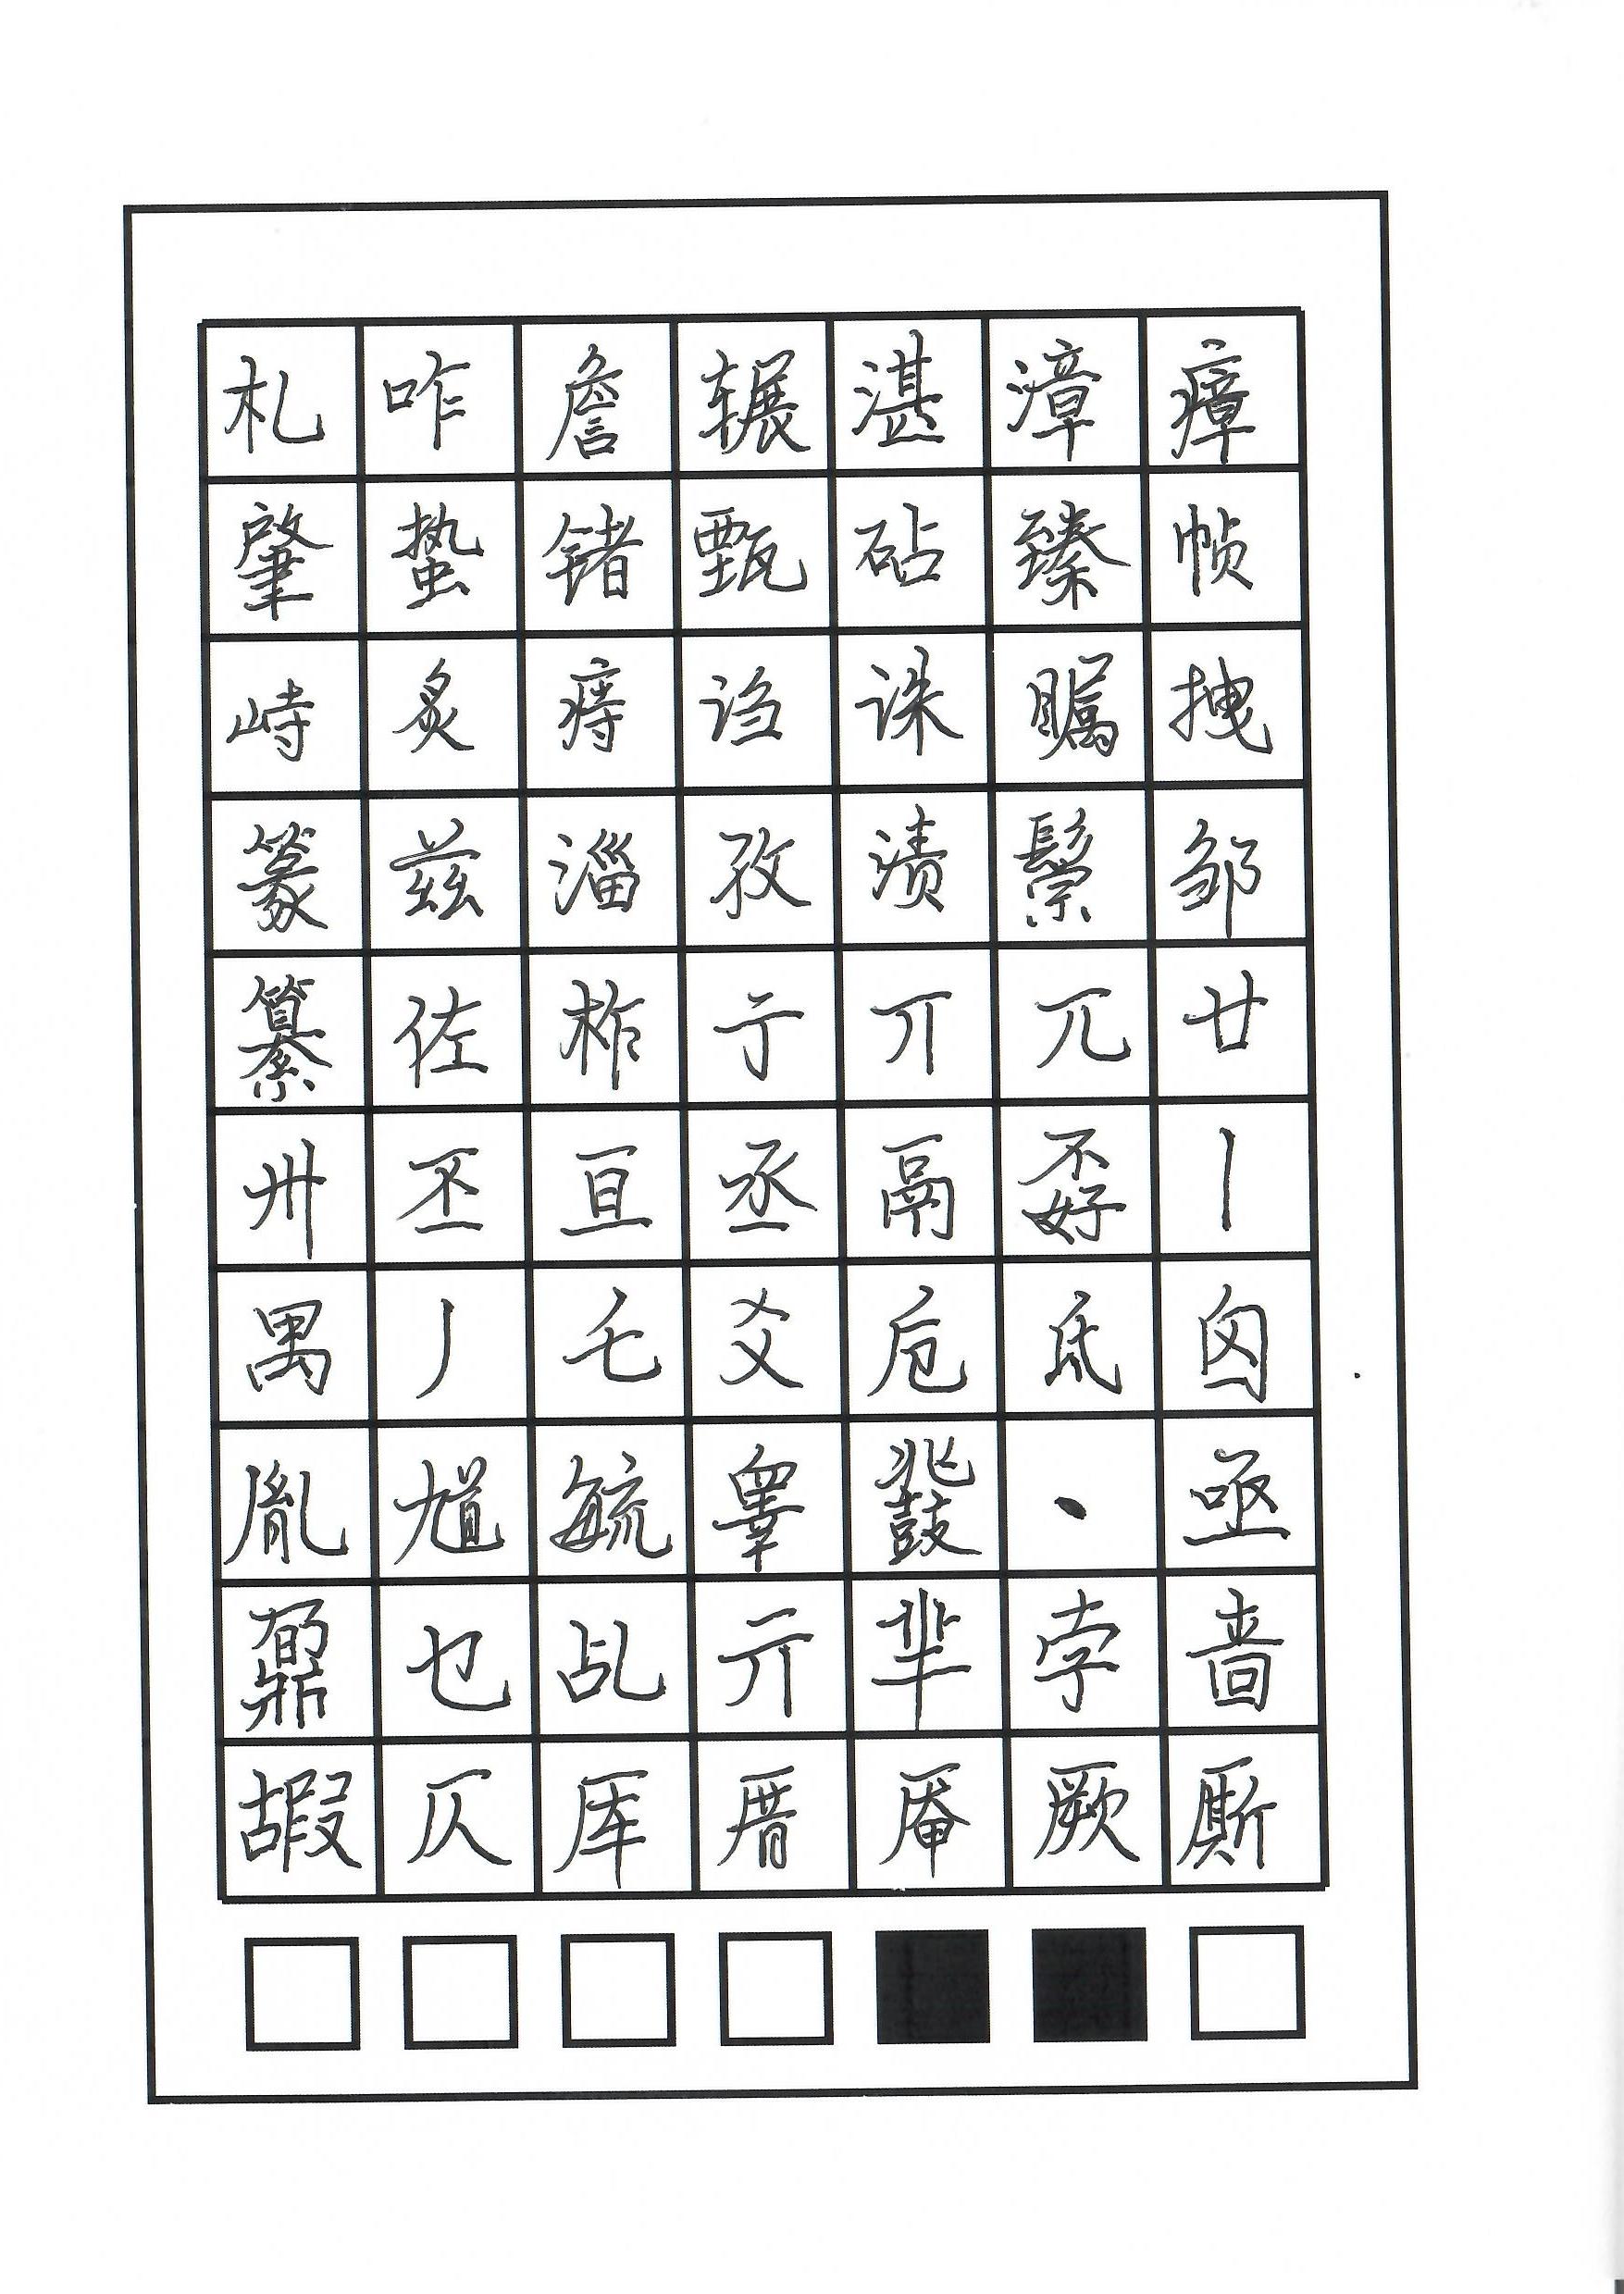 札咋詹辗湛漳瘴
肇蛰锗甄砧臻帧
峙炙痔诌诛瞩拽
篆兹淄孜渍鬃邹
纂佐柞亍丌兀廿
卅丕亘丞鬲孬丨
禺丿乇爻卮氐囟
胤馗毓睾鼗丶亟
鼐乜乩亓芈孛啬
嘏仄厍厝厣厥厮